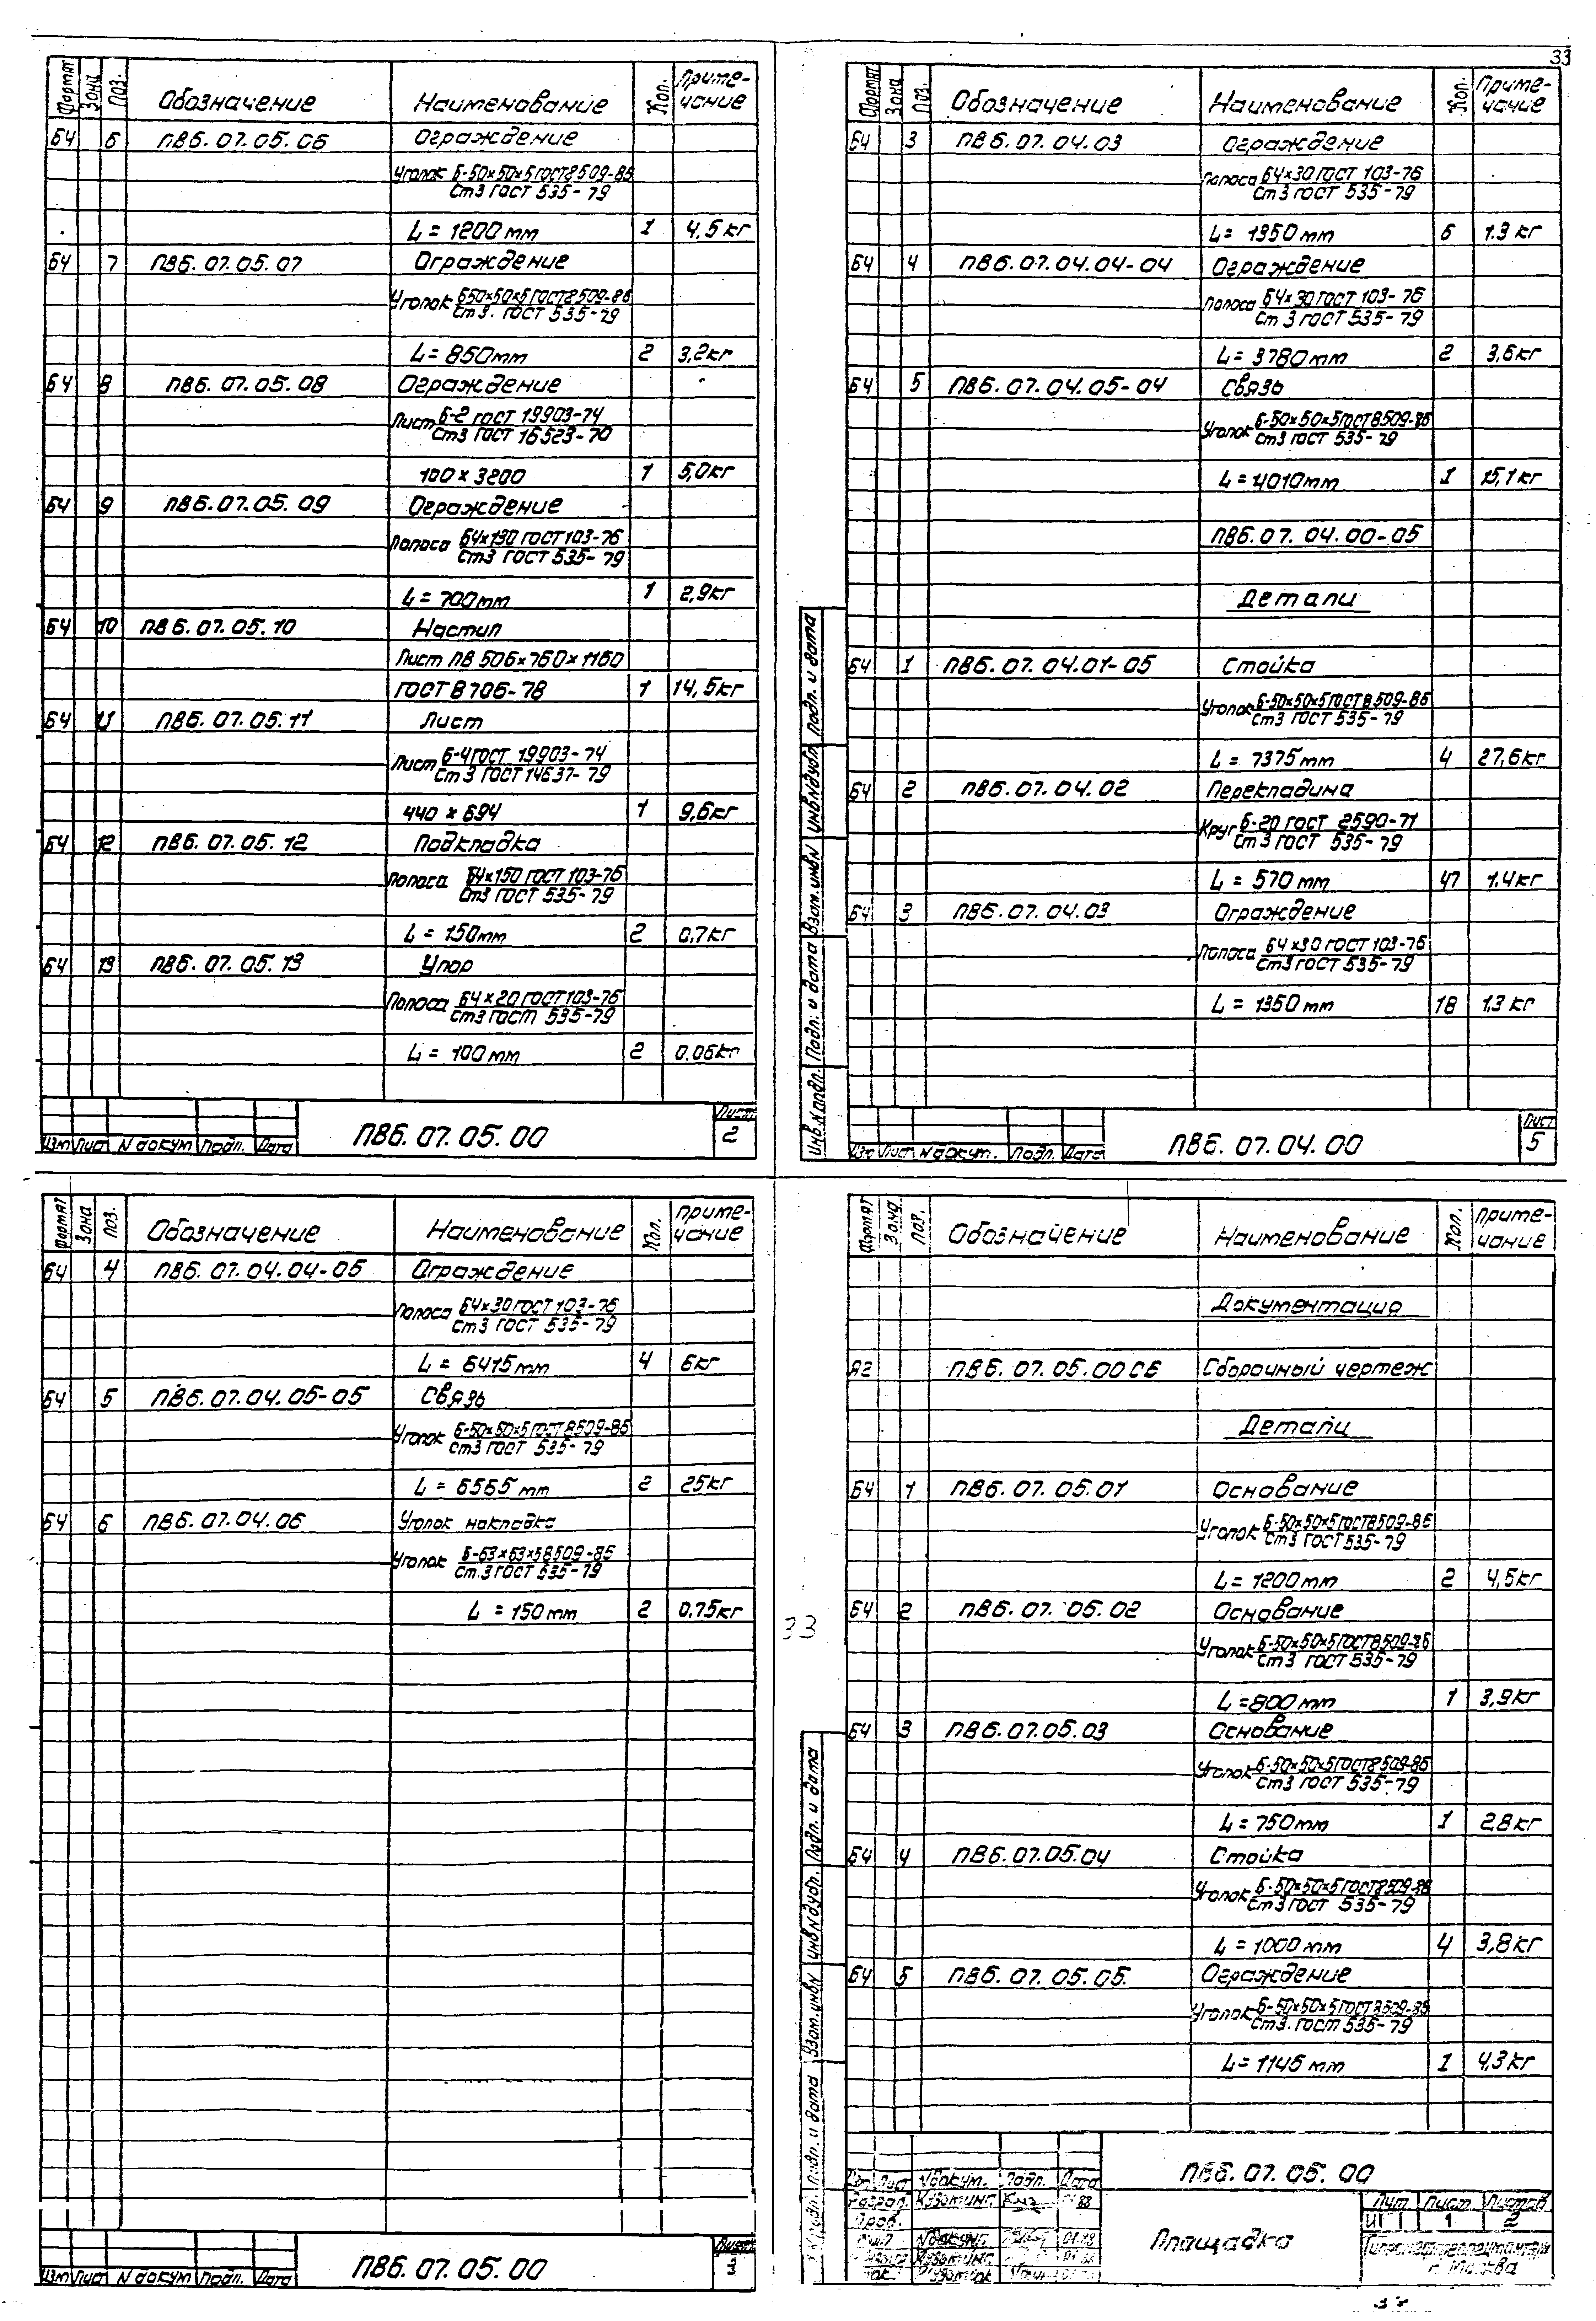 33
Формат Зона Поз. Обозначение Наименование Кол. Примечание
БЧ 6 ПВ6.07.05.06 Ограждение
Уголок Б-50×50×5 ГОСТ 8509-86
Ст3 ГОСТ 535-79
L = 1200 mm 1 4,5 кг
БЧ 7 ПВ6.07.05.07 Ограждение
Уголок Б50×50×5 ГОСТ 8509-86
Ст3. ГОСТ 535-79
L = 850 mm 2 3,2 кг
БЧ 8 ПВ6.07.05.08 Ограждение
Лист Б-2 ГОСТ 19903-74
Ст3 ГОСТ 16523-70
100 × 3200 1 5,0 кг
БЧ 9 ПВ6.07.05.09 Ограждение
Полоса Б4×130 ГОСТ 103-76
Ст3 ГОСТ 535-79
L = 700 mm 1 2,9 кг
БЧ 10 ПВ6.07.05.10 Настил
Лист ПВ 506×760×1160
ГОСТ 8706-78 1 14,5 кг
БЧ 11 ПВ6.07.05.11 Лист
Лист Б-4 ГОСТ 19903-74
Ст3 ГОСТ 14637-79
440 × 694 1 9,6 кг
БЧ 12 ПВ6.07.05.12 Подкладка
Полоса Б4×150 ГОСТ 103-76
Ст3 ГОСТ 535-79
L = 150 mm 2 0,7 кг
БЧ 13 ПВ6.07.05.13 Упор
Полоса Б4×20 ГОСТ 103-76
Ст3 ГОСТ 535-79
L = 100 mm 2 0,06 кг
Изм Лист N докум Подп. Дата ПВ6.07.05.00 Лист 2
Формат Зона Поз. Обозначение Наименование Кол. Примечание
БЧ 3 ПВ6.07.04.03 Ограждение
Полоса Б4×30 ГОСТ 103-76
Ст3 ГОСТ 535-79
L = 1350 mm 6 1.3 кг
БЧ 4 ПВ6.07.04.04-04 Ограждение
Полоса Б4×30 ГОСТ 103-76
Ст3 ГОСТ 535-79
L = 3780 mm 2 3,6 кг
БЧ 5 ПВ6.07.04.05-04 Связь
Уголок Б-50×50×5 ГОСТ 8509-86
Ст3 ГОСТ 535-79
L = 4010 mm 1 15,1 кг
ПВ6.07.04.00-05
Детали
БЧ 1 ПВ6.07.04.01-05 Стойка
Уголок Б-50×50×5 ГОСТ 8509-86
Ст3 ГОСТ 535-79
L = 7375 mm 4 27,6 кг
БЧ 2 ПВ6.07.04.02 Перекладина
Круг Б-20 ГОСТ 2590-71
Ст3 ГОСТ 535-79
L = 570 mm 47 1.4 кг
БЧ 3 ПВ6.07.04.03 Ограждение
Полоса Б4×30 ГОСТ 103-76
Ст3 ГОСТ 535-79
L = 1350 mm 18 1,3 кг
Инв.N подл. Подп. и дата Взам.инв.N Инв.N дубл. Подп. и дата
Изм Лист N докум. Подп. Дата ПВ6.07.04.00 Лист 5
Формат Зона Поз. Обозначение Наименование Кол. Примечание
БЧ 4 ПВ6.07.04.04-05 Ограждение
Полоса Б4×30 ГОСТ 103-76
Ст3 ГОСТ 535-79
L = 6415 mm 4 6 кг
БЧ 5 ПВ6.07.04.05-05 Связь
Уголок Б-50×50×5 ГОСТ 8509-86
Ст3 ГОСТ 535-79
L = 6565 mm 2 25 кг
БЧ 6 ПВ6.07.04.06 Уголок накладка
Уголок Б-63×63×5 8509-86
Ст.3 ГОСТ 535-79
L = 150 mm 2 0.75 кг
Изм Лист N докум Подп. Дата ПВ6.07.05.00 Лист 3
33
Формат Зона Поз. Обозначение Наименование Кол. Примечание
Документация
А2 ПВ6.07.05.00 СБ Сборочный чертеж
Детали
БЧ 1 ПВ6.07.05.01 Основание
Уголок Б-50×50×5 ГОСТ 8509-86
Ст3 ГОСТ 535-79
L = 1200 mm 2 4,5 кг
БЧ 2 ПВ6.07.05.02 Основание
Уголок Б-50×50×5 ГОСТ 8509-86
Ст3 ГОСТ 535-79
L = 800 mm 1 3,9 кг
БЧ 3 ПВ6.07.05.03 Основание
Уголок Б-50×50×5 ГОСТ 8509-86
Ст3 ГОСТ 535-79
L = 750 mm 1 2.8 кг
БЧ 4 ПВ6.07.05.04 Стойка
Уголок Б-50×50×5 ГОСТ 8509-86
Ст3 ГОСТ 535-79
L = 1000 mm 4 3,8 кг
БЧ 5 ПВ6.07.05.05. Ограждение
Уголок Б-50×50×5 ГОСТ 8509-86
Ст3. ГОСТ 535-79
L = 1145 mm 1 4,3 кг
Подп. и дата Взам.инв.N Инв.N дубл. Подп. и дата
ПВ6.07.05.00
Лист N докум. Подп. Дата
Площадка
Лит Лист Листов
И 1 2
г. Москва